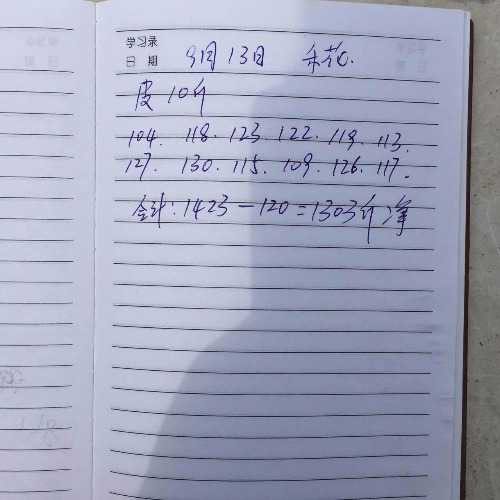 学习录
日 期 9月13日 禾花.
皮10斤
104. 118. 123. 122. 119. 113.
127. 130. 115. 109. 126. 117.
合计:1423-120=1303斤净